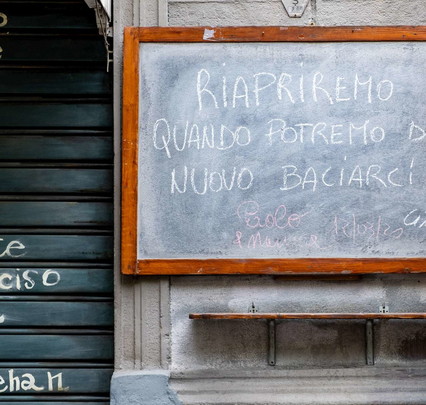 RIAPRIREMO
QUANDO POTREMO D
NUOVO BACIARCI
Paolo
&
12/03/20
te
ciso
ehan